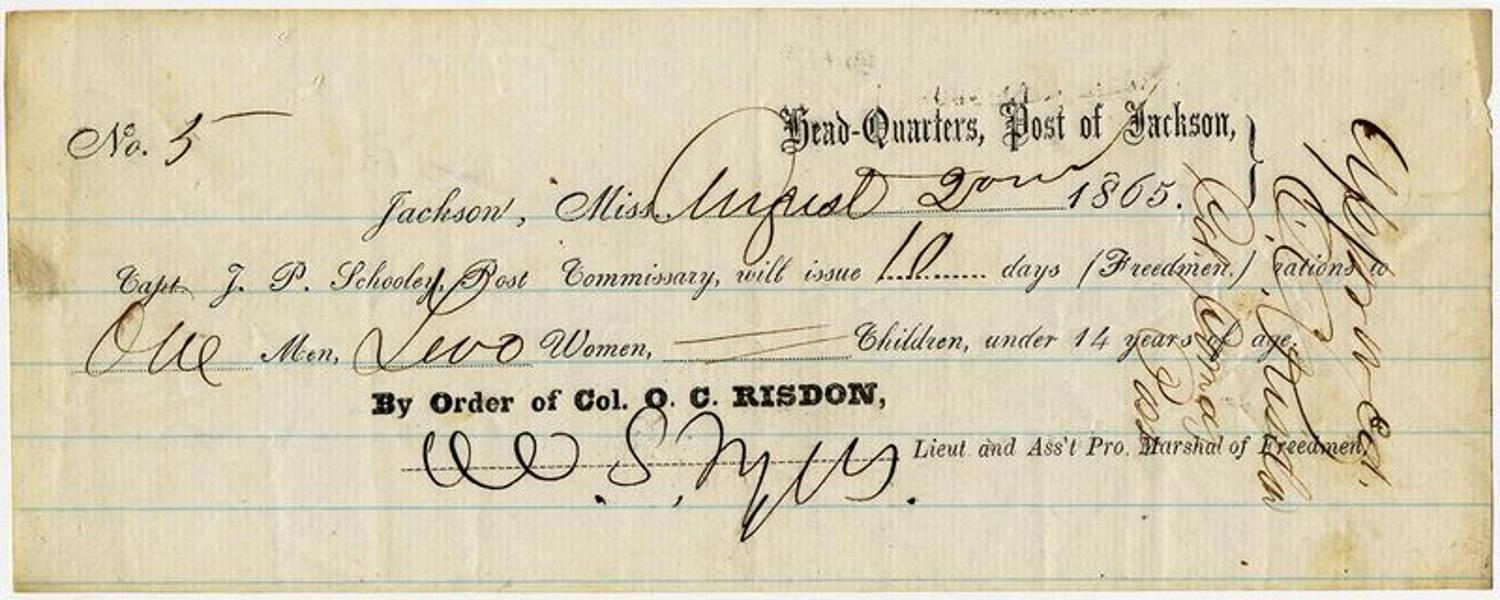 No. 5
Head-Quarters, Post of Jackson,
Jackson, Miss. August 2 1865.
Capt. J. P. Schooley, Post Commissary, will issue 10 days (Freedmen.) rations to
One Men, Two Women, Children, under 14 years of age.
By Order of Col. O. C. RISDON,
W. S. Myers. Lieut and Ass't Pro. Marshal of Freedmen,
Approved.
Col